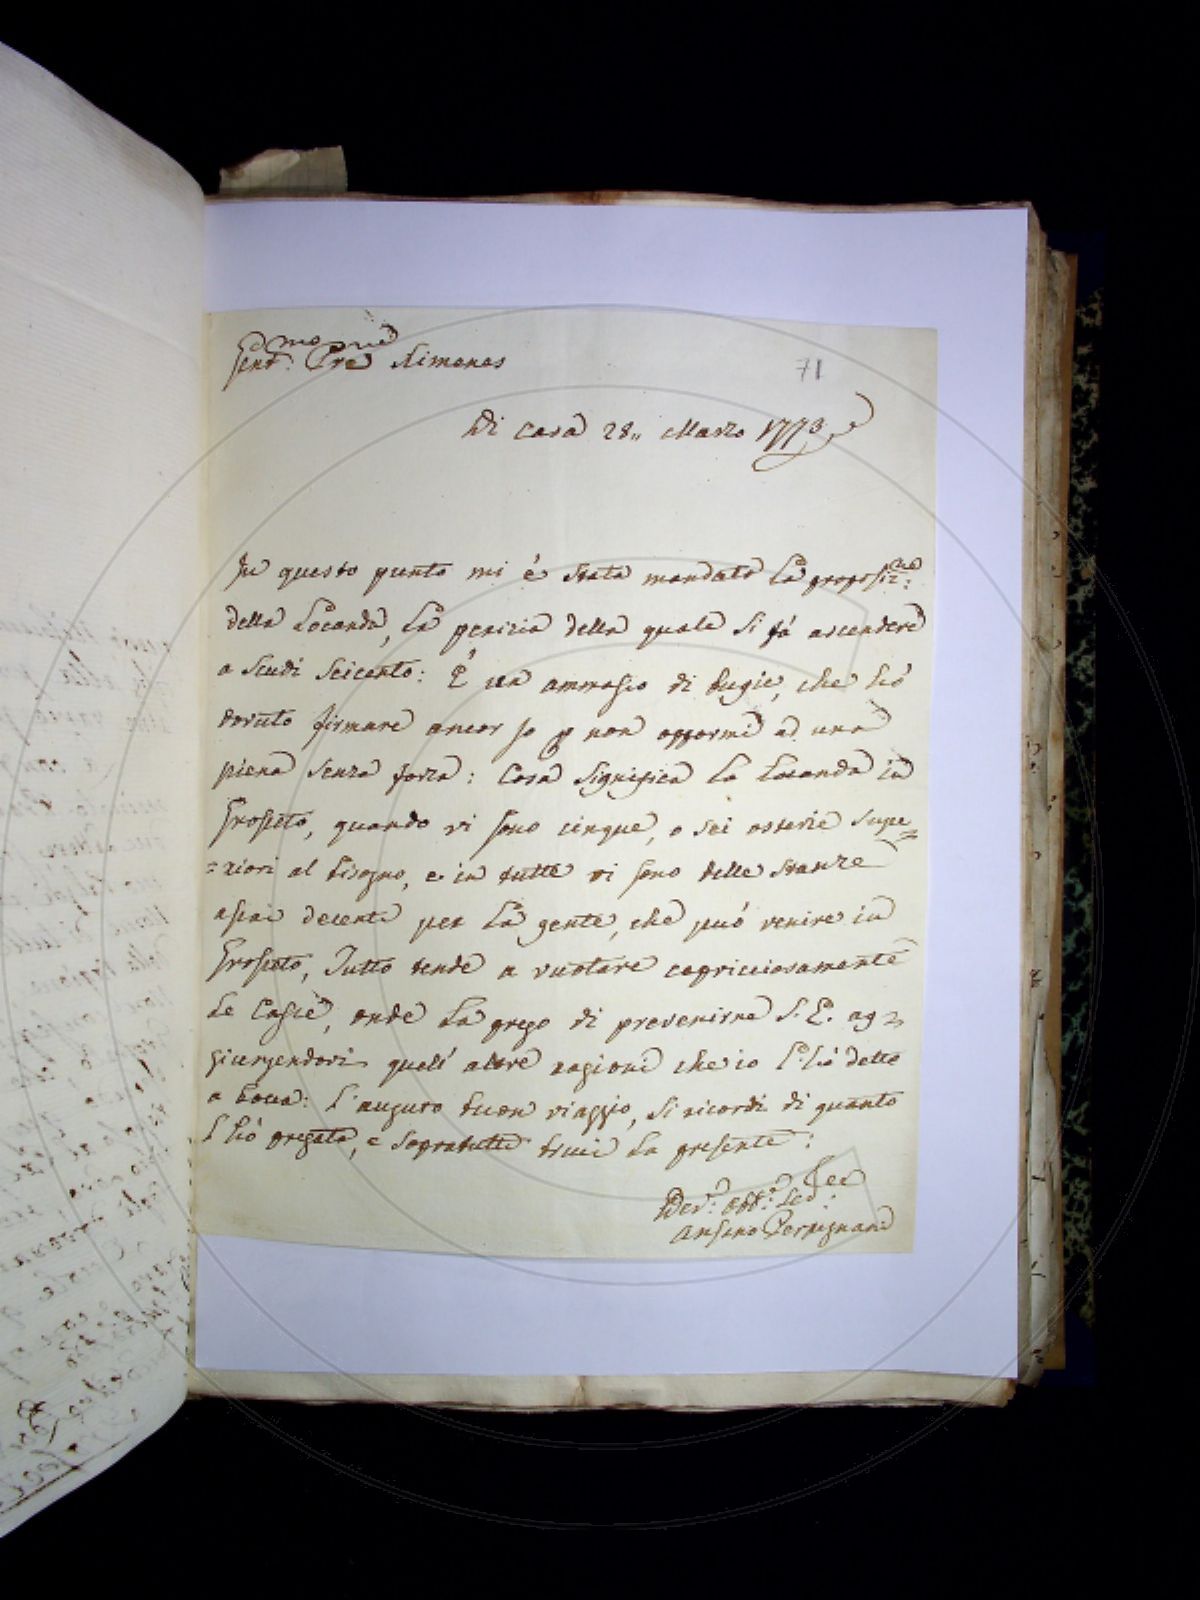 Gent.mo Pre Pne Ximenes
71
Di Casa 28,, Marzo 1773
In questo punto mi è stata mandata La proposiz.ne
della Locanda, La perizia della quale si fà ascendere
a scudi seicento: È un ammasso di bugie, che hò
dovuto firmare ancor Io p non oppormi ad una
piena senza forza: Cosa significa La Locanda in
Grosseto, quando vi sono cinque, o sei osterie supe=
=riori al bisogno, e in tutte vi sono delle stanze
assai decenti per La gente, che può venire in
Grosseto, Tutto tende a vuotare capricciosamente
Le Casse, onde La prego di prevenirne S. E. ag=
giungendovi quell' altre ragioni che io L'hò dette
a bocca: L'auguro buon viaggio, si ricordi di quanto
L'hò pregata, e sopratutto bruci La presente:
Dev.o Obb.o Se
Ansano Perpignani